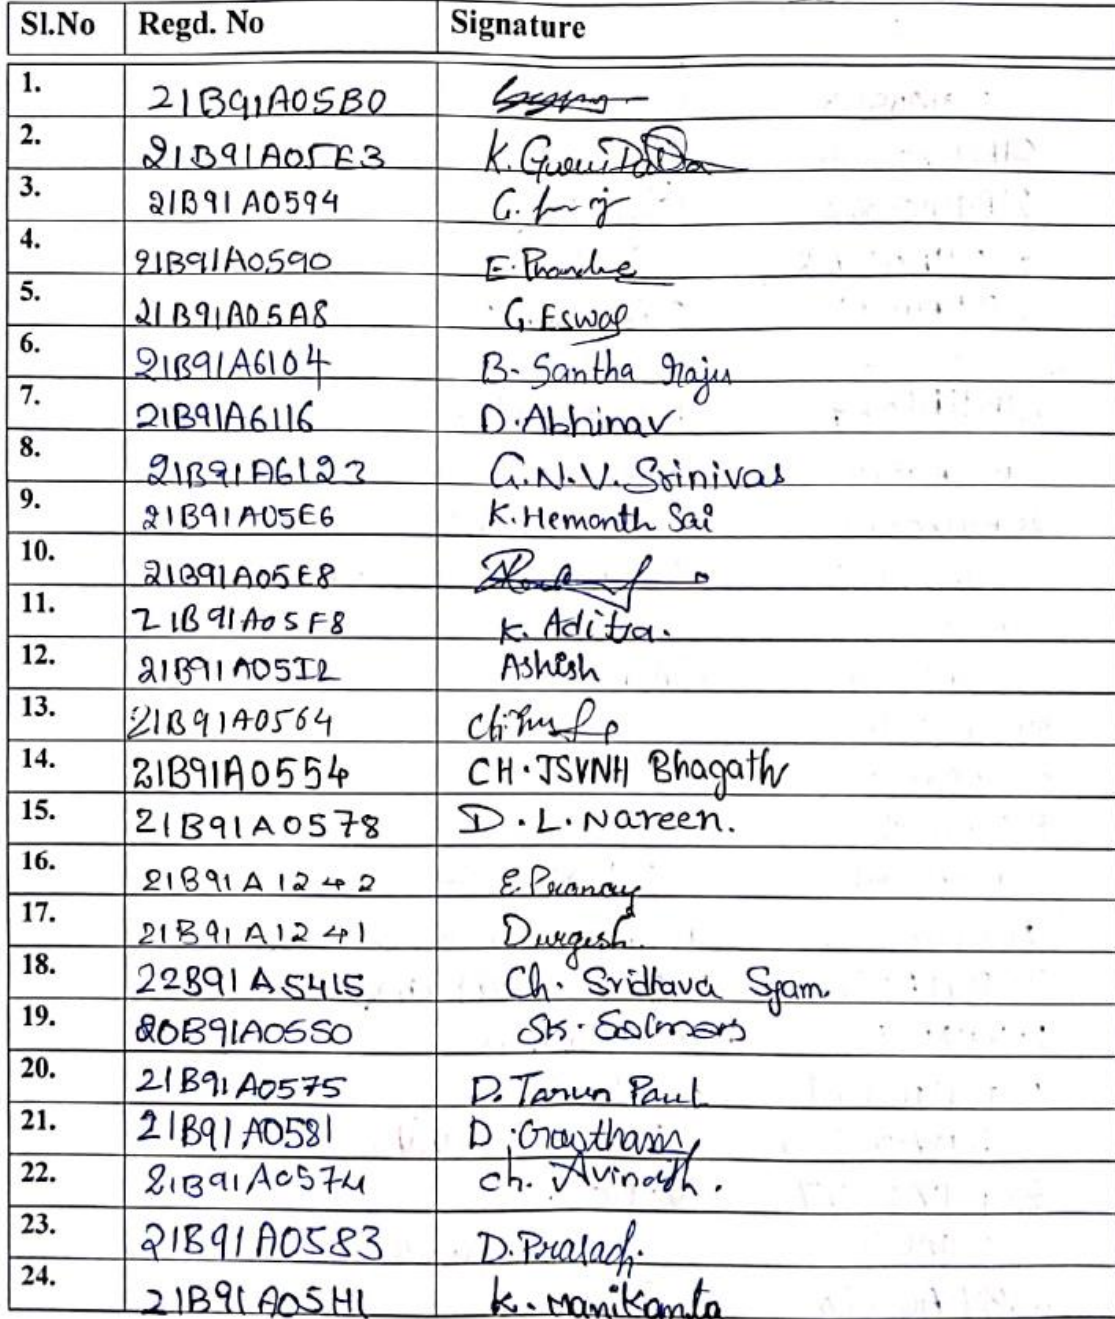 Sl.No Regd. No Signature
1. 21B91A05B0
2. 21B91A05E3 K.
3. 21B91A0594 G.
4. 21B91A0590 E.
5. 21B91A05A8 G. Eswar
6. 21B91A6104 B. Santha Raju
7. 21B91A6116 D. Abhinav
8. 21B91A6123 G.N.V. Srinivas
9. 21B91A05E6 K. Hemanth Sai
10. 21B91A05E8
11. 21B91A05F8 K. Aditya.
12. 21B91A05I2 Ashish
13. 21B91A0564
14. 21B91A0554 CH. JSVNH Bhagath
15. 21B91A0578 D. L. Nareen.
16. 21B91A1242 E. Pranay
17. 21B91A1241 Durgesh.
18. 22B91A5415 Ch. Sridhava Syam.
19. 20B91A0550 Sk.
20. 21B91A0575 D. Tarun Paul
21. 21B91A0581 D. Gowthami
22. 21B91A0574 ch. Avinash.
23. 21B91A0583 D. Prasad.
24. 21B91A05H1 K. Manikanta